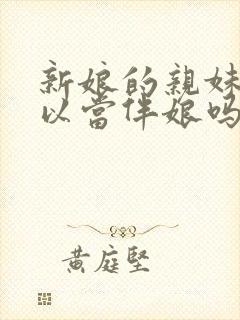 新娘的親妹
以當伴娘吗
黄庭堅